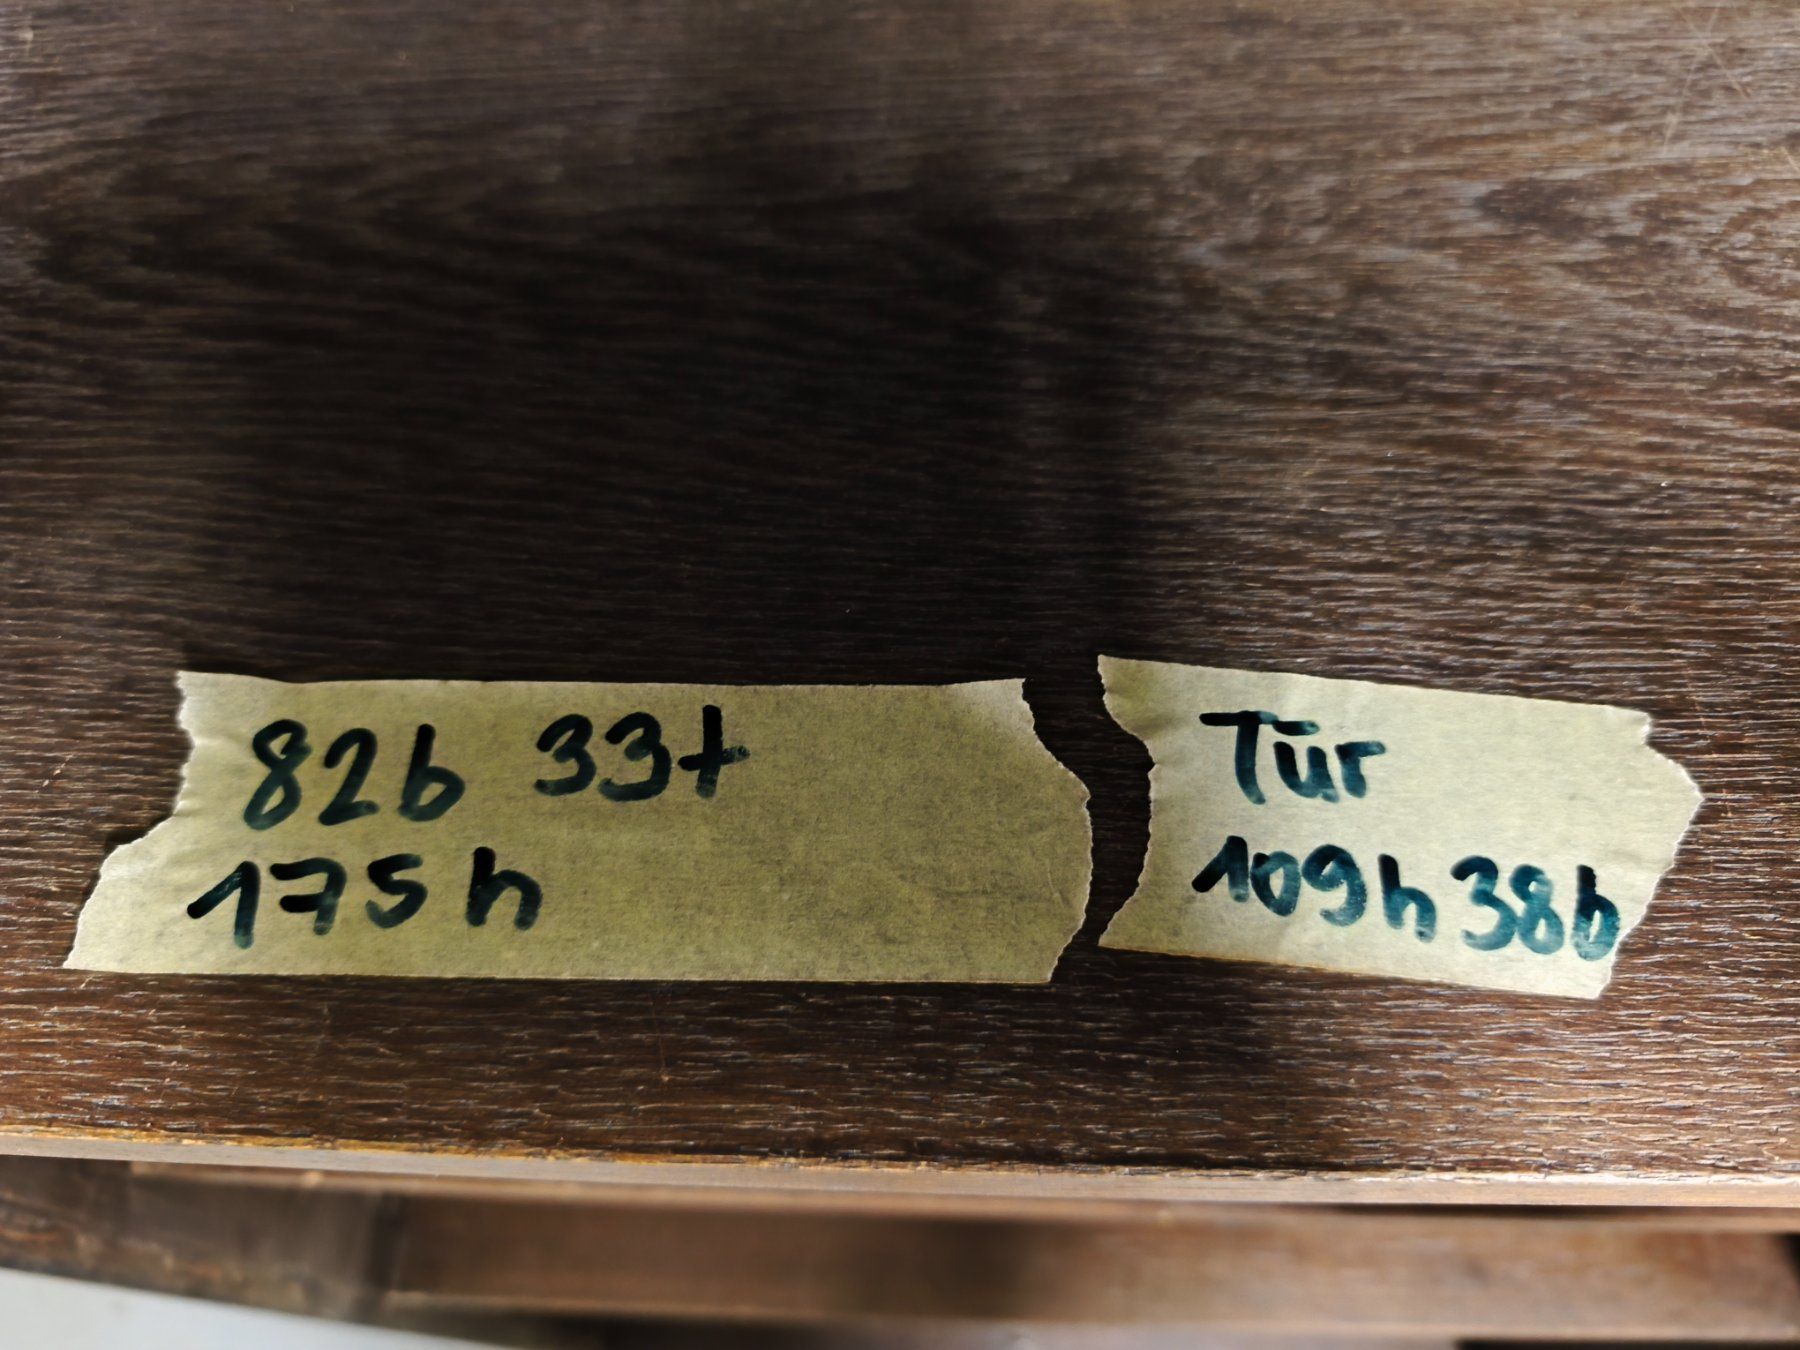 82b 33t
175h
Tür
109h 38b